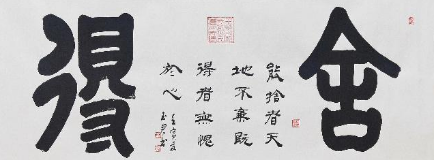 舍
能捨者天
地不棄既
得者無愧
於心
壬寅
得